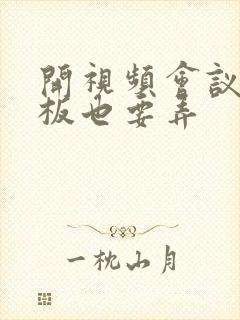 開視頻會議
板也要弄
一枕山月